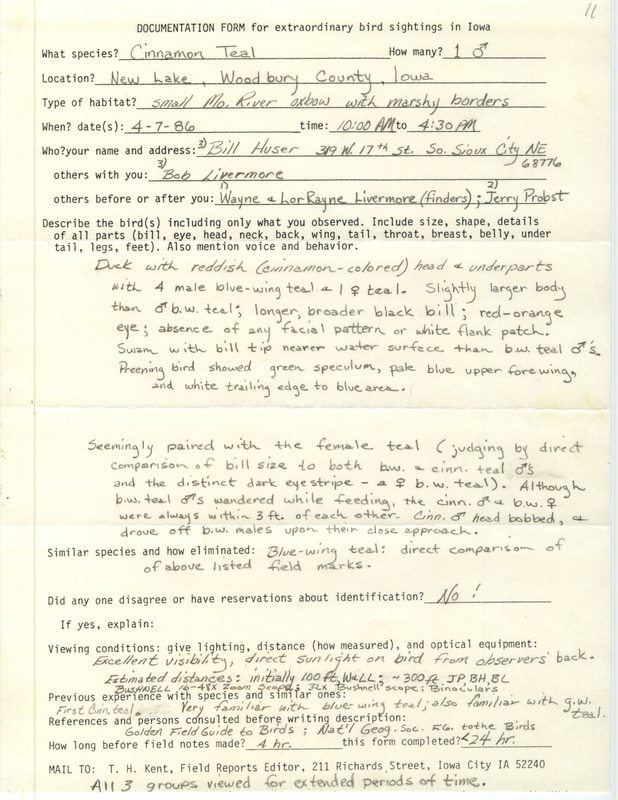 11
DOCUMENTATION FORM for extraordinary bird sightings in Iowa
What species? Cinnamon Teal How many? 1 ♂
Location? New Lake, Woodbury County, Iowa
Type of habitat? small Mo. River oxbow with marshy borders
When? date(s): 4-7-86 time: 10:00 AM to 4:30 PM
Who?your name and address: 3) Bill Huser 319 W. 17th St. So. Sioux City NE
68776
others with you: 3) Bob Livermore
others before or after you: 1) Wayne & LorRayne Livermore (finders); 2) Jerry Probst
Describe the bird(s) including only what you observed. Include size, shape, details
of all parts (bill, eye, head, neck, back, wing, tail, throat, breast, belly, under
tail, legs, feet). Also mention voice and behavior.
Duck with reddish (cinnamon-colored) head & underparts
with 4 male blue-wing teal & 1 ♀ teal. Slightly larger body
than ♂ b.w. teal; longer, broader black bill; red-orange
eye; absence of any facial pattern or white flank patch.
Swam with bill tip nearer water surface than b.w. teal ♂'s.
Preening bird showed green speculum, pale blue upper forewing,
and white trailing edge to blue area.
Seemingly paired with the female teal (judging by direct
comparison of bill size to both b.w. & cinn. teal ♂'s
and the distinct dark eyestripe - a ♀ b.w. teal). Although
b.w. teal ♂'s wandered while feeding, the cinn. ♂ & b.w. ♀
were always within 3 ft. of each other. Cinn. ♂ head bobbed, &
drove off b.w. males upon their close approach.
Similar species and how eliminated: Blue-wing teal: direct comparison of
of above listed field marks.
Did any one disagree or have reservations about identification? No!
If yes, explain:
Viewing conditions: give lighting, distance (how measured), and optical equipment:
Excellent visibility, direct sunlight on bird from observers' back.
Estimated distances: initially 100 ft. W&LL; ~300 ft JP, BH, BL
BUSHNELL 16-48X Zoom Scope; 32X Bushnell scope; Binoculars
Previous experience with species and similar ones:
First Cinn. teal. Very familiar with blue wing teal; also familiar with g.w.
teal.
References and persons consulted before writing description:
Golden Field Guide to Birds; Nat'l Geog. Soc. F.G. to the Birds
How long before field notes made? 4 hr. this form completed? <24 hr.
MAIL TO: T. H. Kent, Field Reports Editor, 211 Richards Street, Iowa City IA 52240
All 3 groups viewed for extended periods of time.